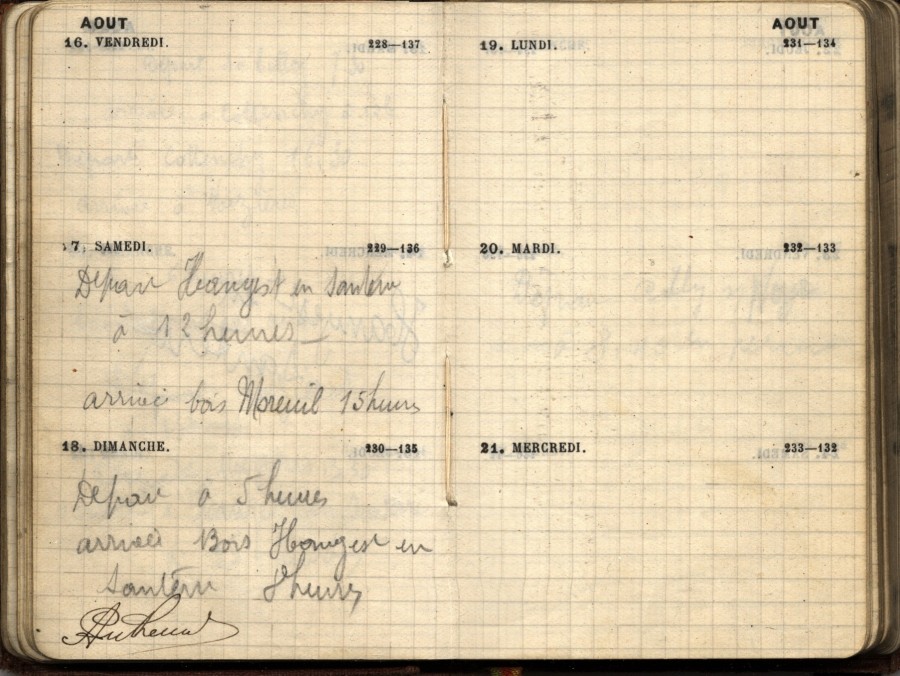 AOUT
16. VENDREDI. 228—137
7. SAMEDI. 229—136
Depar Hangest en Santerre
à 12 heures —
arrivée bois Moreuil 15 heures
18. DIMANCHE. 230—135
Depar à 5 heures
arrivée Bois Hangest en
Santerre 8 heures
AOUT
19. LUNDI. 231—134
20. MARDI. 232—133
21. MERCREDI. 233—132